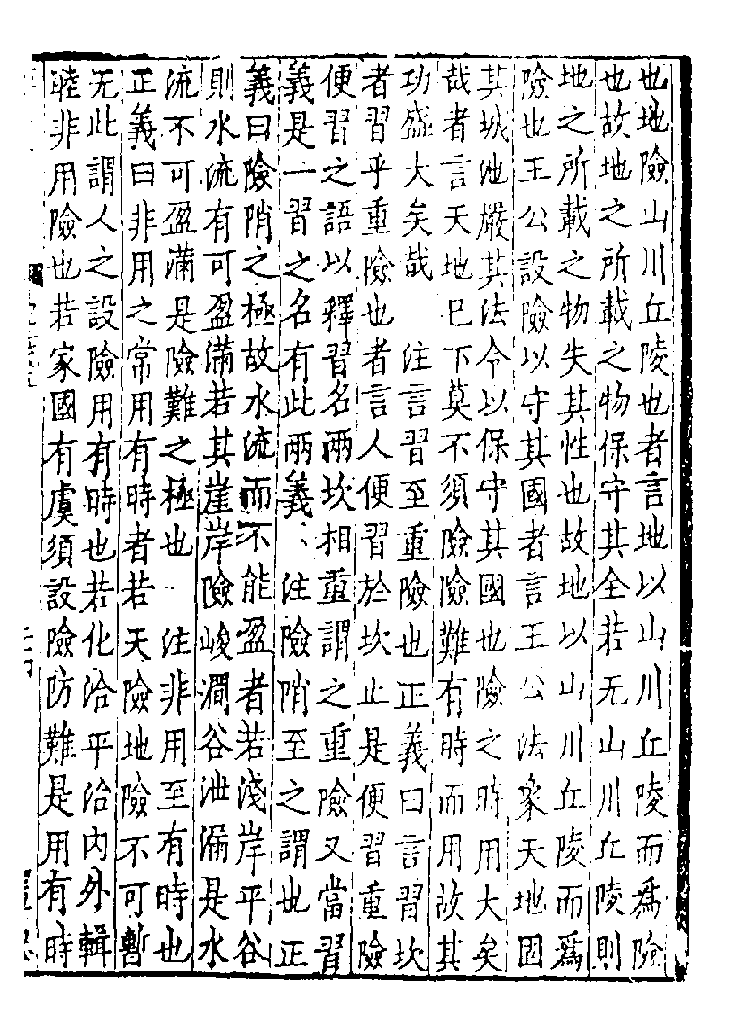 也地險山川丘陵也者言地以山川丘陵而爲險
也故地之所載之物保守其全若无山川丘陵則
地之所載之物失其性也故地以山川丘陵而爲
險也王公設險以守其國者言王公法象天地固
其城池嚴其法令以保守其國也險之時用大矣
哉者言天地巳下莫不須險險難有時而用故其
功盛大矣哉　注言習至重險也正義曰言習坎
者習乎重險也者言人便習於坎止是便習重險
便習之語以釋習名兩坎相重謂之重險又當習
義是一習之名有此兩義　注險陗至之謂也正
義曰險陗之極故水流而不能盈者若淺岸平谷
則水流有可盈滿若其崖岸險峻澗谷泄漏是水
流不可盈滿是險難之極也　注非用至有時也
正義曰非用之常用有時者若天險地險不可暫
无此謂人之設險用有時也若化洽平治內外輯
睦非用險也若家國有虞須設險防難是用有時